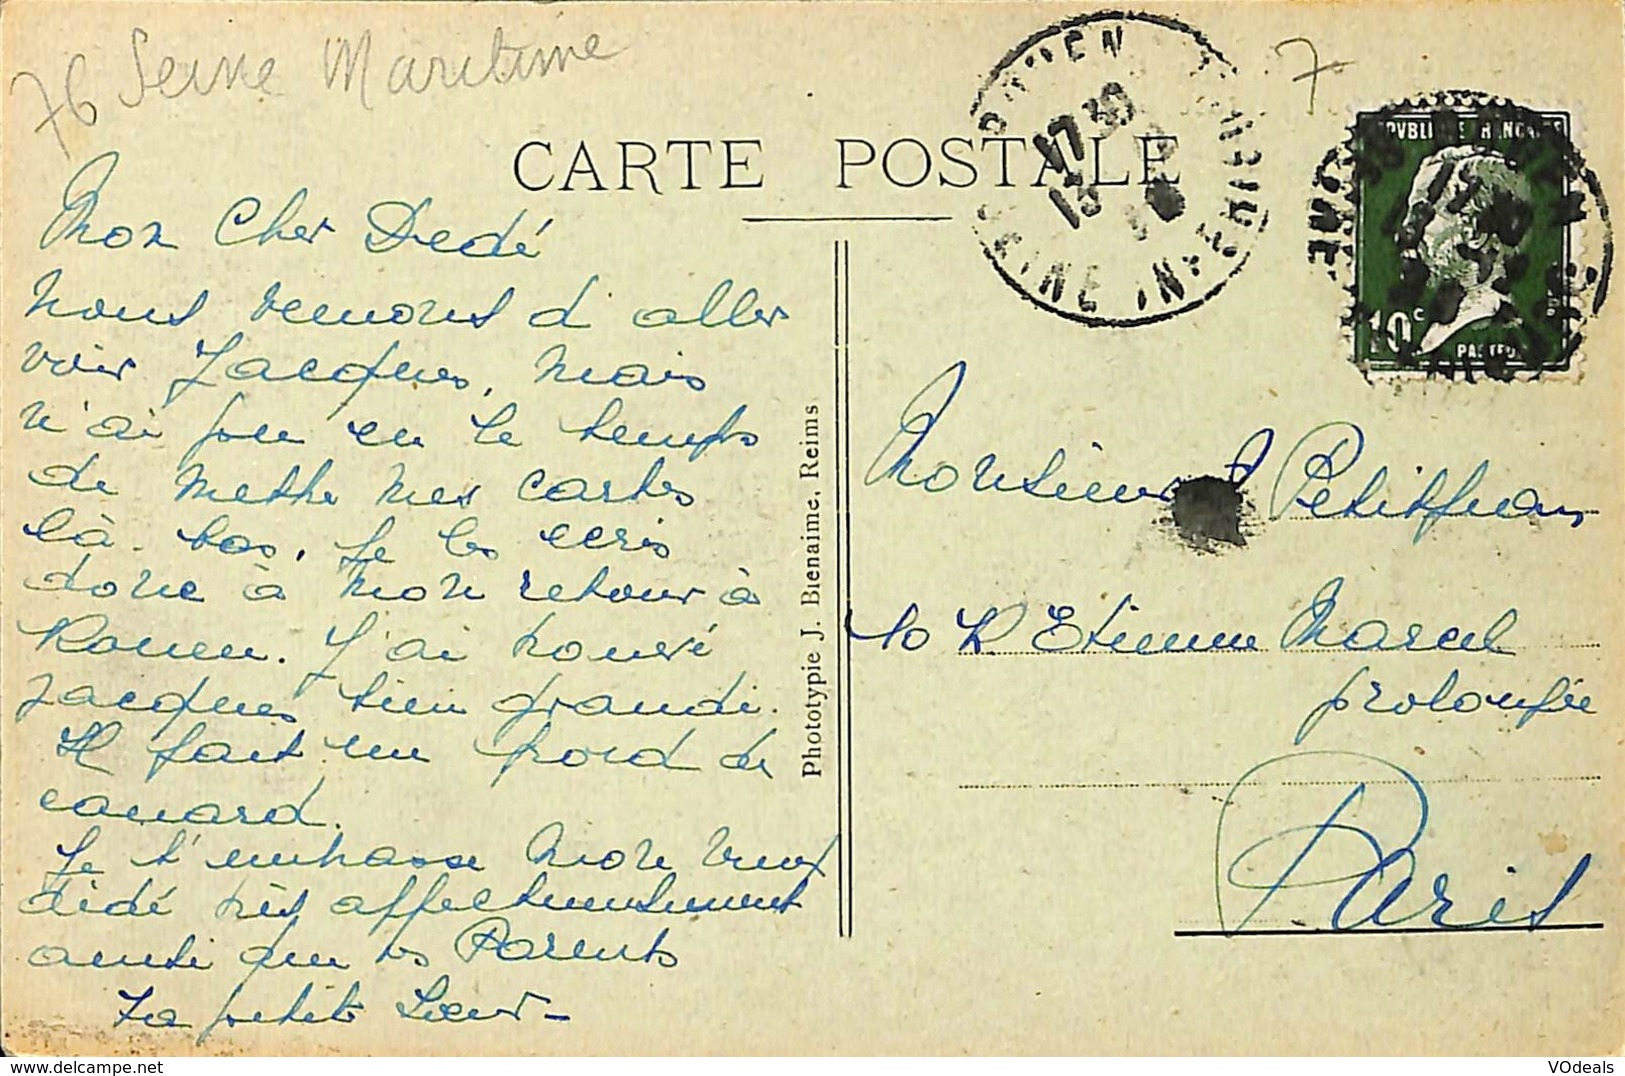 76 Seine Maritime
7
CARTE POSTALE
ROUEN
17 30
13
SEINE INFERIEURE
10c
PASTEUR
Mon Cher Dedé
nous venons d'aller
voir Jacques, mais
n'ai pu eu le temps
de mettre mes cartes
là-bas, Je les ecris
donc à mon retour à
Rouen. J'ai trouvé
Jacques bien grandi.
Il fait un froid de
canard.
Je t'embrasse mon vieux
dédé très affectueusement
ainsi que tes Parents
Ta petite Soeur
Phototypie J. Bienaimé, Reims
Monsieur A Petitjean
10 R Etienne Marcel
prolongée
Paris
VOdeals